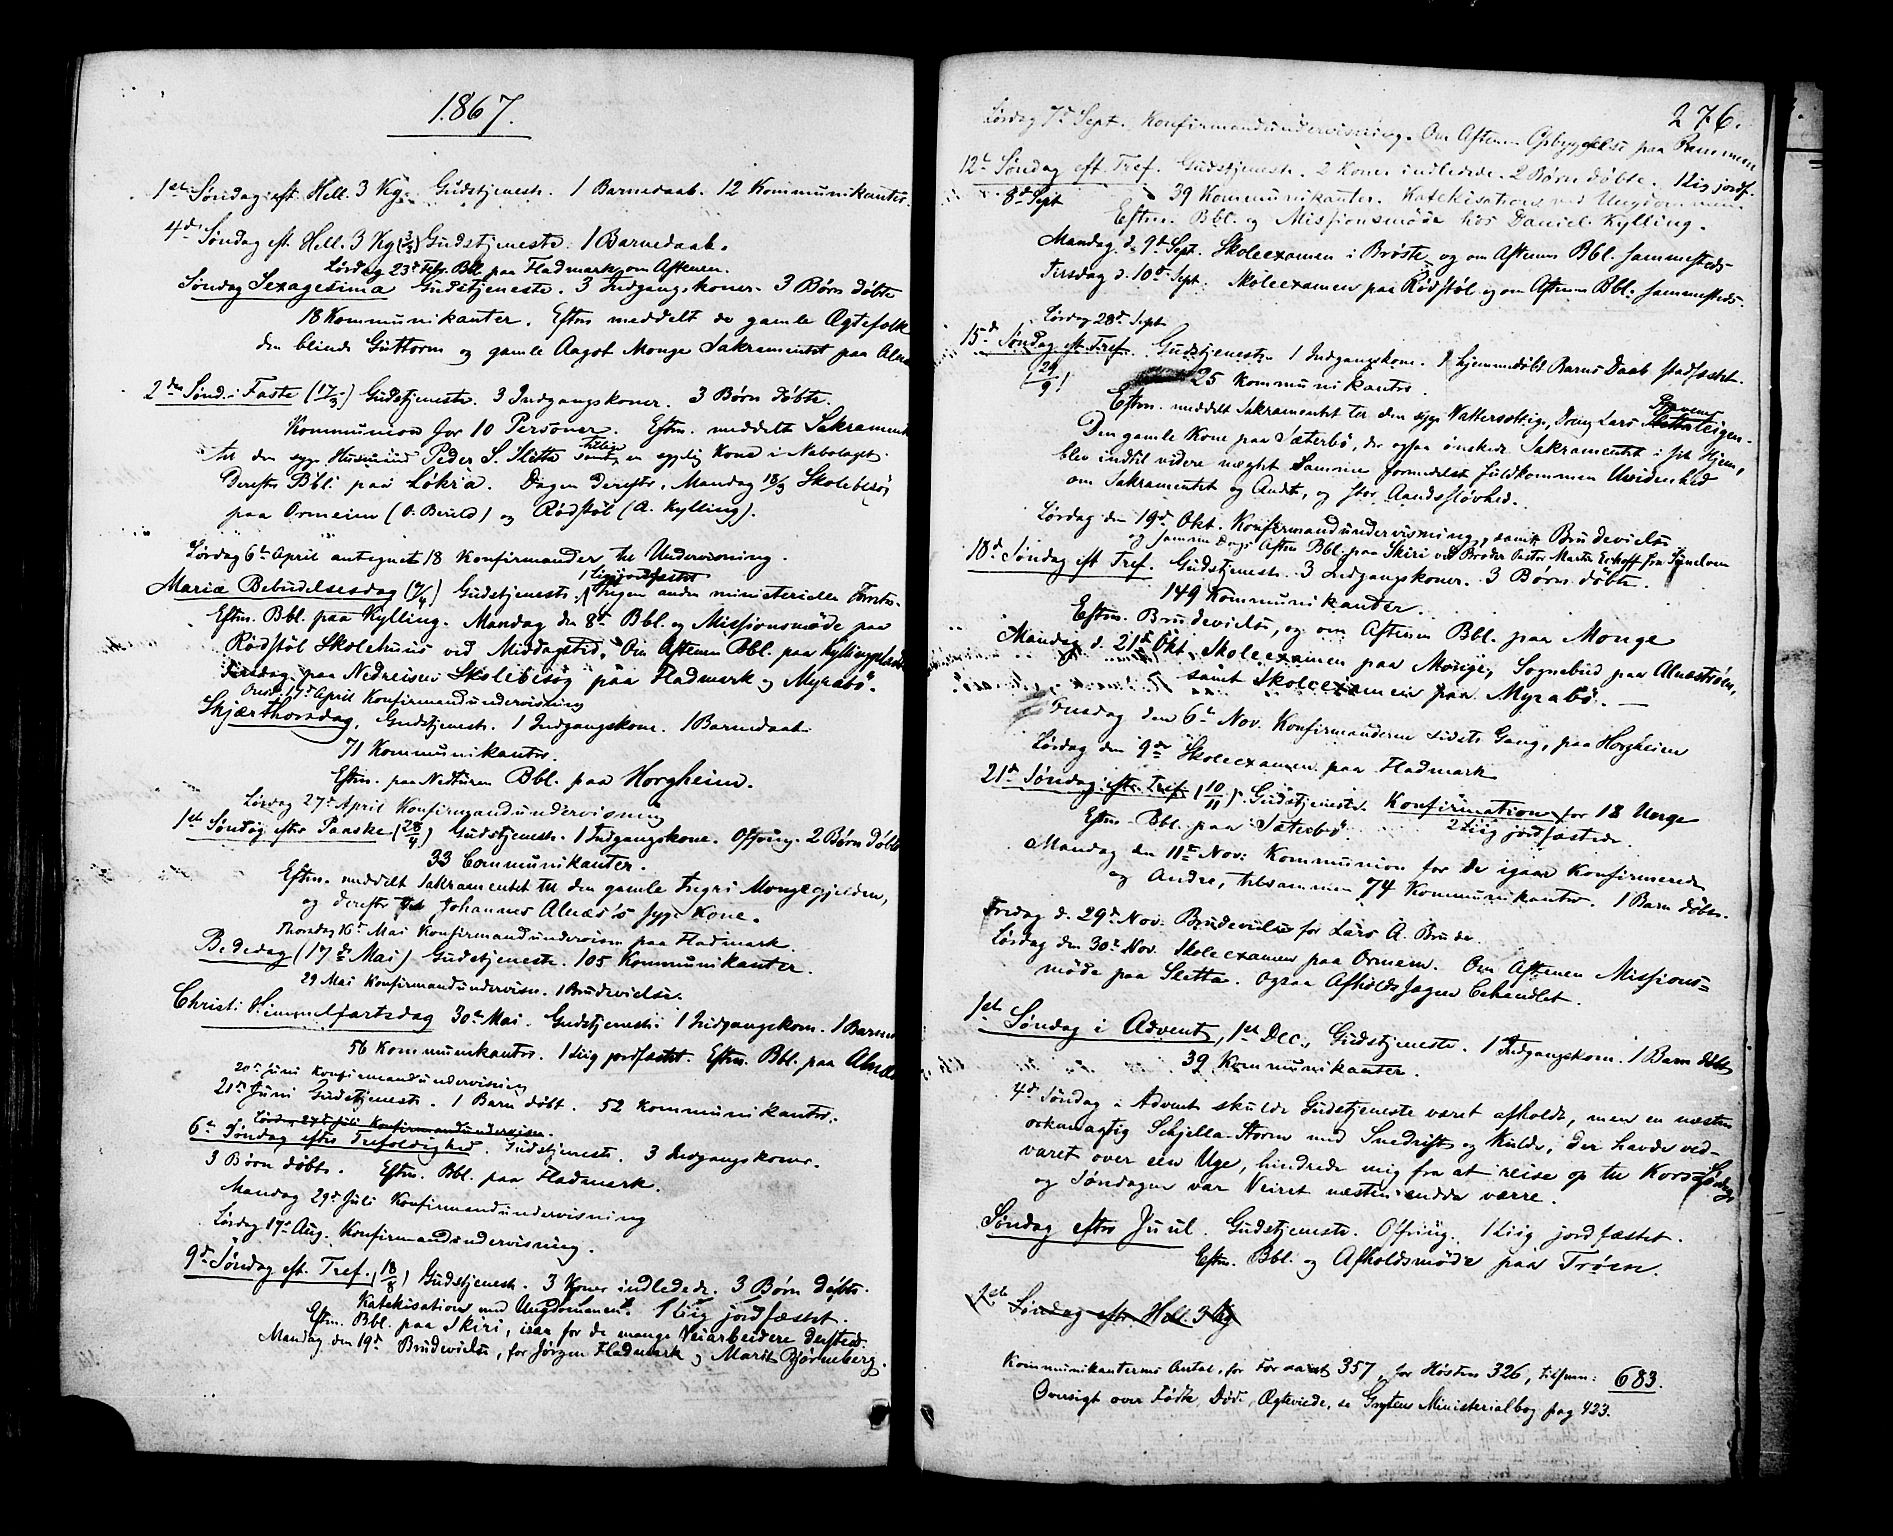 1867.
1ste Søndag eft. Hell. 3 Kg. Gudstjeneste. 1 Barnedaab. 12 Kommunikanter.
4de Søndag eft. Hell. 3 Kg (3/3) Gudstjeneste. 1 Barnedaab.
Lørdag 23de Febr. Bbl. paa Fladmark om Aftenen.
Søndag Sexagesima Gudstjeneste. 3 Indgangskoner. 3 Børn døbte
18 Kommunikanter. Eftm. meddelt de gamle Ægtefolk
den blinde Guttorm og gamle Aagot Monge Sakramentet paa Alnæs
2den Sønd. i Faste (17/3) Gudstjeneste. 3 Indgangskoner. 3 Børn døbte.
Kommunion for 10 Personer. Eftm. meddelt Sakrament
til den syge Husmand Peder S. Sletta en sygelig Kone i Nabolaget.
Derefter Bbl. paa Løkra. Dagen derefter, Mandag 18/3 Skolebesøg
paa Ormeim (O. Beuld) og Rødstøl (A. Kylling).
Lørdag 6te April antegnet 18 Konfirmander til Undervisning.
1 Liig jordfæstet
Mariæ Bebudelsesdag (7/4) Gudstjeneste. Ingen anden ministerielle Forretn.
Eftm. Bbl. paa Kylling. Mandag den 8de Bbl. og Missionsmøde paa
Rødstøl Skolehuus ved Middagstid. Om Aftenen Bbl. paa Kyllingplads
Tirsdag paa Nedreisen Skolebesøg paa Fladmark og Myrabø.
Onsd. 17de April Konfirmandundervisning
Skjærthorsdag. Gudstjeneste. 1 Indgangskone. 1 Barnedaab
71 Kommunikanter.
Eftm. paa Nedturen Bbl. paa Horgheim.
Lørdag 27de April Konfirmandundervisning
1ste Søndag efter Paaske (28/4) Gudstjeneste. 1 Indgangskone. Offring. 2 Børn døbte
33 Communikanter.
Eftm. meddelt Sakramentet til den gamle Ingri Mongegjerden,
og derefter til Johannes Alnæs's syge Kone.
Thorsdag 16de Mai Konfirmandundervisn paa Fladmark.
Bededag (17de Mai) Gudstjeneste. 105 Kommunikanter.
29 Mai Konfirmandundervisn. 1 Brudevielse.
Christi Himmelfartsdag 30te Mai. Gudstjeneste. 1 Indgangskone. 1 Barned
56 Kommunikanter. 1 Liig jordfæstet. Eftm. Bbl. paa Alnæs
20de Juni Konfirmandundervisning
21de Juni Gudstjeneste. 1 Barn døbt. 52 Kommunikanter.
Lørd. 27de Juli Konfirmandundervisn.
6te Søndag efter Trefoldighed. Gudstjeneste. 3 Indgangskoner.
3 Børn døbte. Eftm. Bbl. paa Fladmark.
Mandag 29de Juli Konfirmandundervisning
Lørdag 17de Aug. Konfirmandundervisning.
9de Søndag eft. Tref. (18/8) Gudstjeneste. 3 Koner indledede. 3 Børn døbte.
Katekisation med Ungdommen. 1 Liig jordfæstet.
Eftm. Bbl. paa Skiri, især for de mange Veiarbeidere dersteds.
Mandag den 19de Brudevielse, for Jørgen Fladmark og Marit Bjørneberg.
276.
Lørdag 7de Sept. Konfirmandundervisning. Om Aftenen Opbyggelse paa Remmem
12te Søndag eft. Tref. Gudstjeneste. 2 Koner indledede. 2 Børn døbte. 1 Liig jordf.
8de Sept 39 Kommunikanter. Katekisation med Ungdommen.
Eftm. Bbl. og Missionsmøde hos Daniel Kylling.
Mandag d. 9de Sept. Skoleexamen i Brøste og om Aftenen Bbl. sammesteds
Tirsdag d. 10de Sept. Skoleexamen paa Rødstøl og om Aftenen Bbl. sammesteds.
Lørdag 28de Sept
15de Søndag eft. Tref. Gudstjeneste 1 Indgangskone. 1 hjemmedøbt Barns Daab stadfæstet.
(29/9) 25 Kommunikanter.
Eftm. meddelt Sakramentet til den syge Vattersottige Dreng Lars
Den gamle Kone paa Sæterbø, der ogsaa ønskede Sakramentet i sit Hjem,
blev indtil videre nægtet Samme formedelst fuldkommen Uvidenhed
om Sakramentet og Andet, og stor Aandssløvhed.
Lørdag den 19de Okt. Konfirmandundervisning, samt Brudevielse
og samme Dags Aften Bbl. paa Skiri ved Broder Pastor Martin Eckhoff fra
18de Søndag eft Tref. Gudstjeneste. 3 Indgangskoner. 3 Børn døbte.
149 Kommunikanter.
Eftm. Brudevielse, og om Aftenen Bbl. paa Monge
Mandag d. 21de Okt. Skoleexamen paa Monge, Sognebud paa Alnæstrøen,
samt Skoleexamen paa Myrabø. —
Onsdag den 6te Nov. Konfirmanderne sidste Gang, paa Horgheim
Lørdag den 9de Skoleexamen paa Fladmark
21de Søndag eft. Tref. (10/11) Gudstjeneste. Konfirmation for 18 Unge
2 Liig jordfæstede.
Eftm. Bbl. paa Sæterbø
Mandag den 11te Nov. Kommunion for de igaar Konfirmerede
og Andre, tilsammen 74 Kommunikanter. 1 Barn døbt.
Fredag d. 29de Nov. Brudevielse for Lars A. Brude.
Lørdag den 30te Nov. Skoleexamen paa Ormeim. Om Aftenen Missions-
møde paa Sletta. Ogsaa Afholdssagen behandlet.
1ste Søndag i Advent, 1ste Dec., Gudstjeneste. 1 Indgangskone. 1 Barn døbt
39 Kommunikanter.
4de Søndag i Advent skulde Gudstjeneste været afholdt, men en næsten
orkanagtig Storm med Snedrift og Kulde, der havde ved-
varet over een Uge, hindrede mig fra at reise op til Kors Lørdag,
og Søndagen var Veiret næsten endda værre.
Søndag efter Juul. Gudstjeneste. Offring. 1 Liig jordfæstet.
Eftm. Bbl. og Afholdsmøde paa Trøen.
1ste Søndag efter Hell. 3 Kg
Kommunikanternes Antal, for Foraaret 357, for Høsten 326, tilsam: 683.
Oversigt over Fødte, Døde, Ægteviede, se Grytens Ministerialbog pag 423.